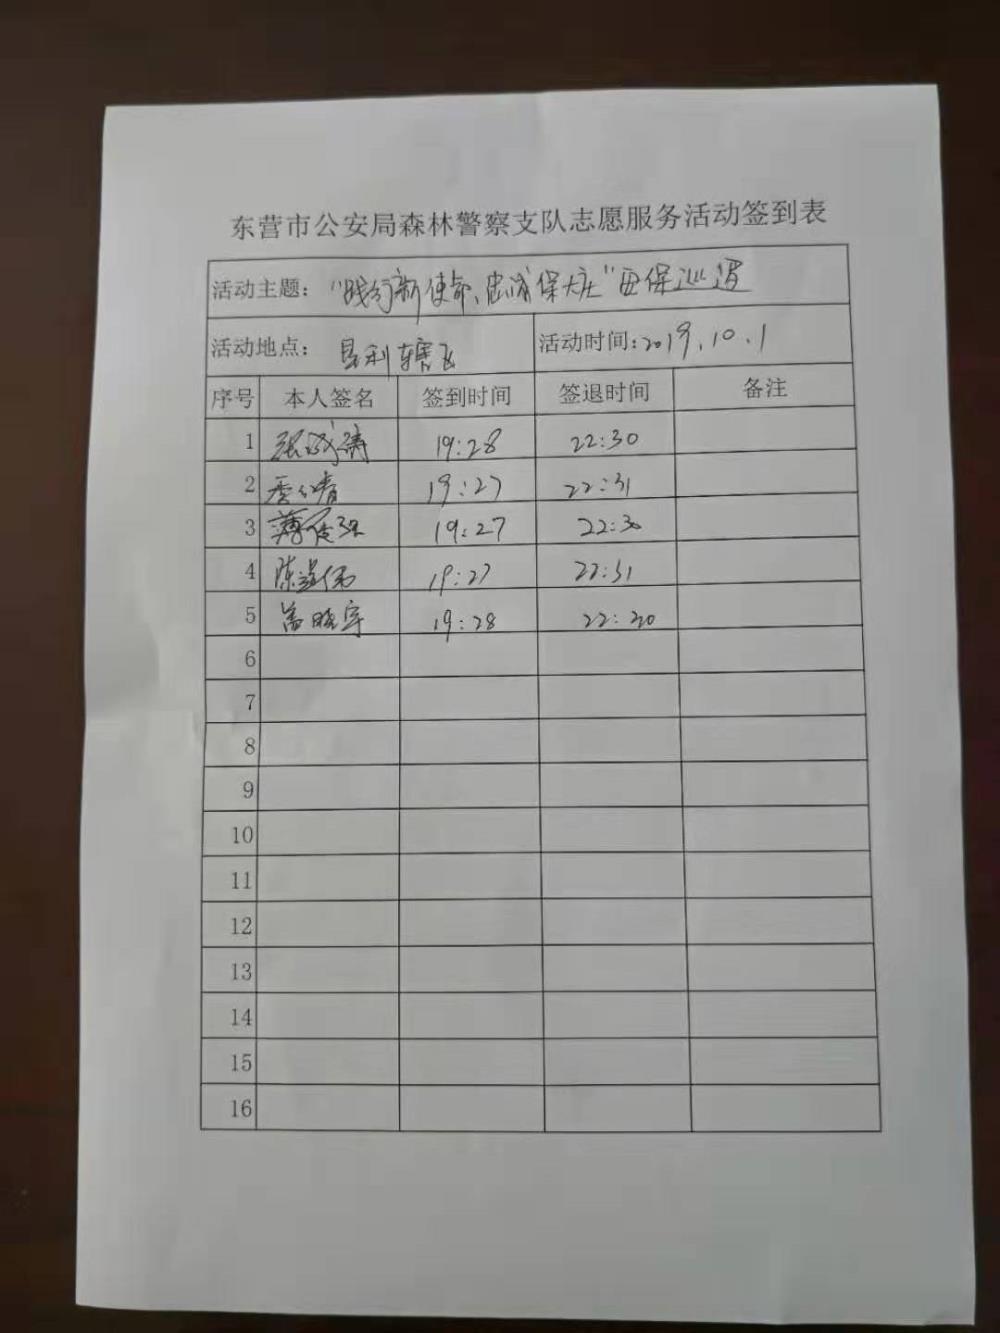 东营市公安局森林警察支队志愿服务活动签到表
活动主题："践行新使命、忠诚保大庆"安保巡逻
活动地点：垦利辖区 活动时间：2019.10.1
序号 本人签名 签到时间 签退时间 备注
1 19:28 22:30
2 19:27 22:31
3 19:27 22:30
4 陈 19:27 22:31
5 晓宇 19:28 22:30
6
7
8
9
10
11
12
13
14
15
16